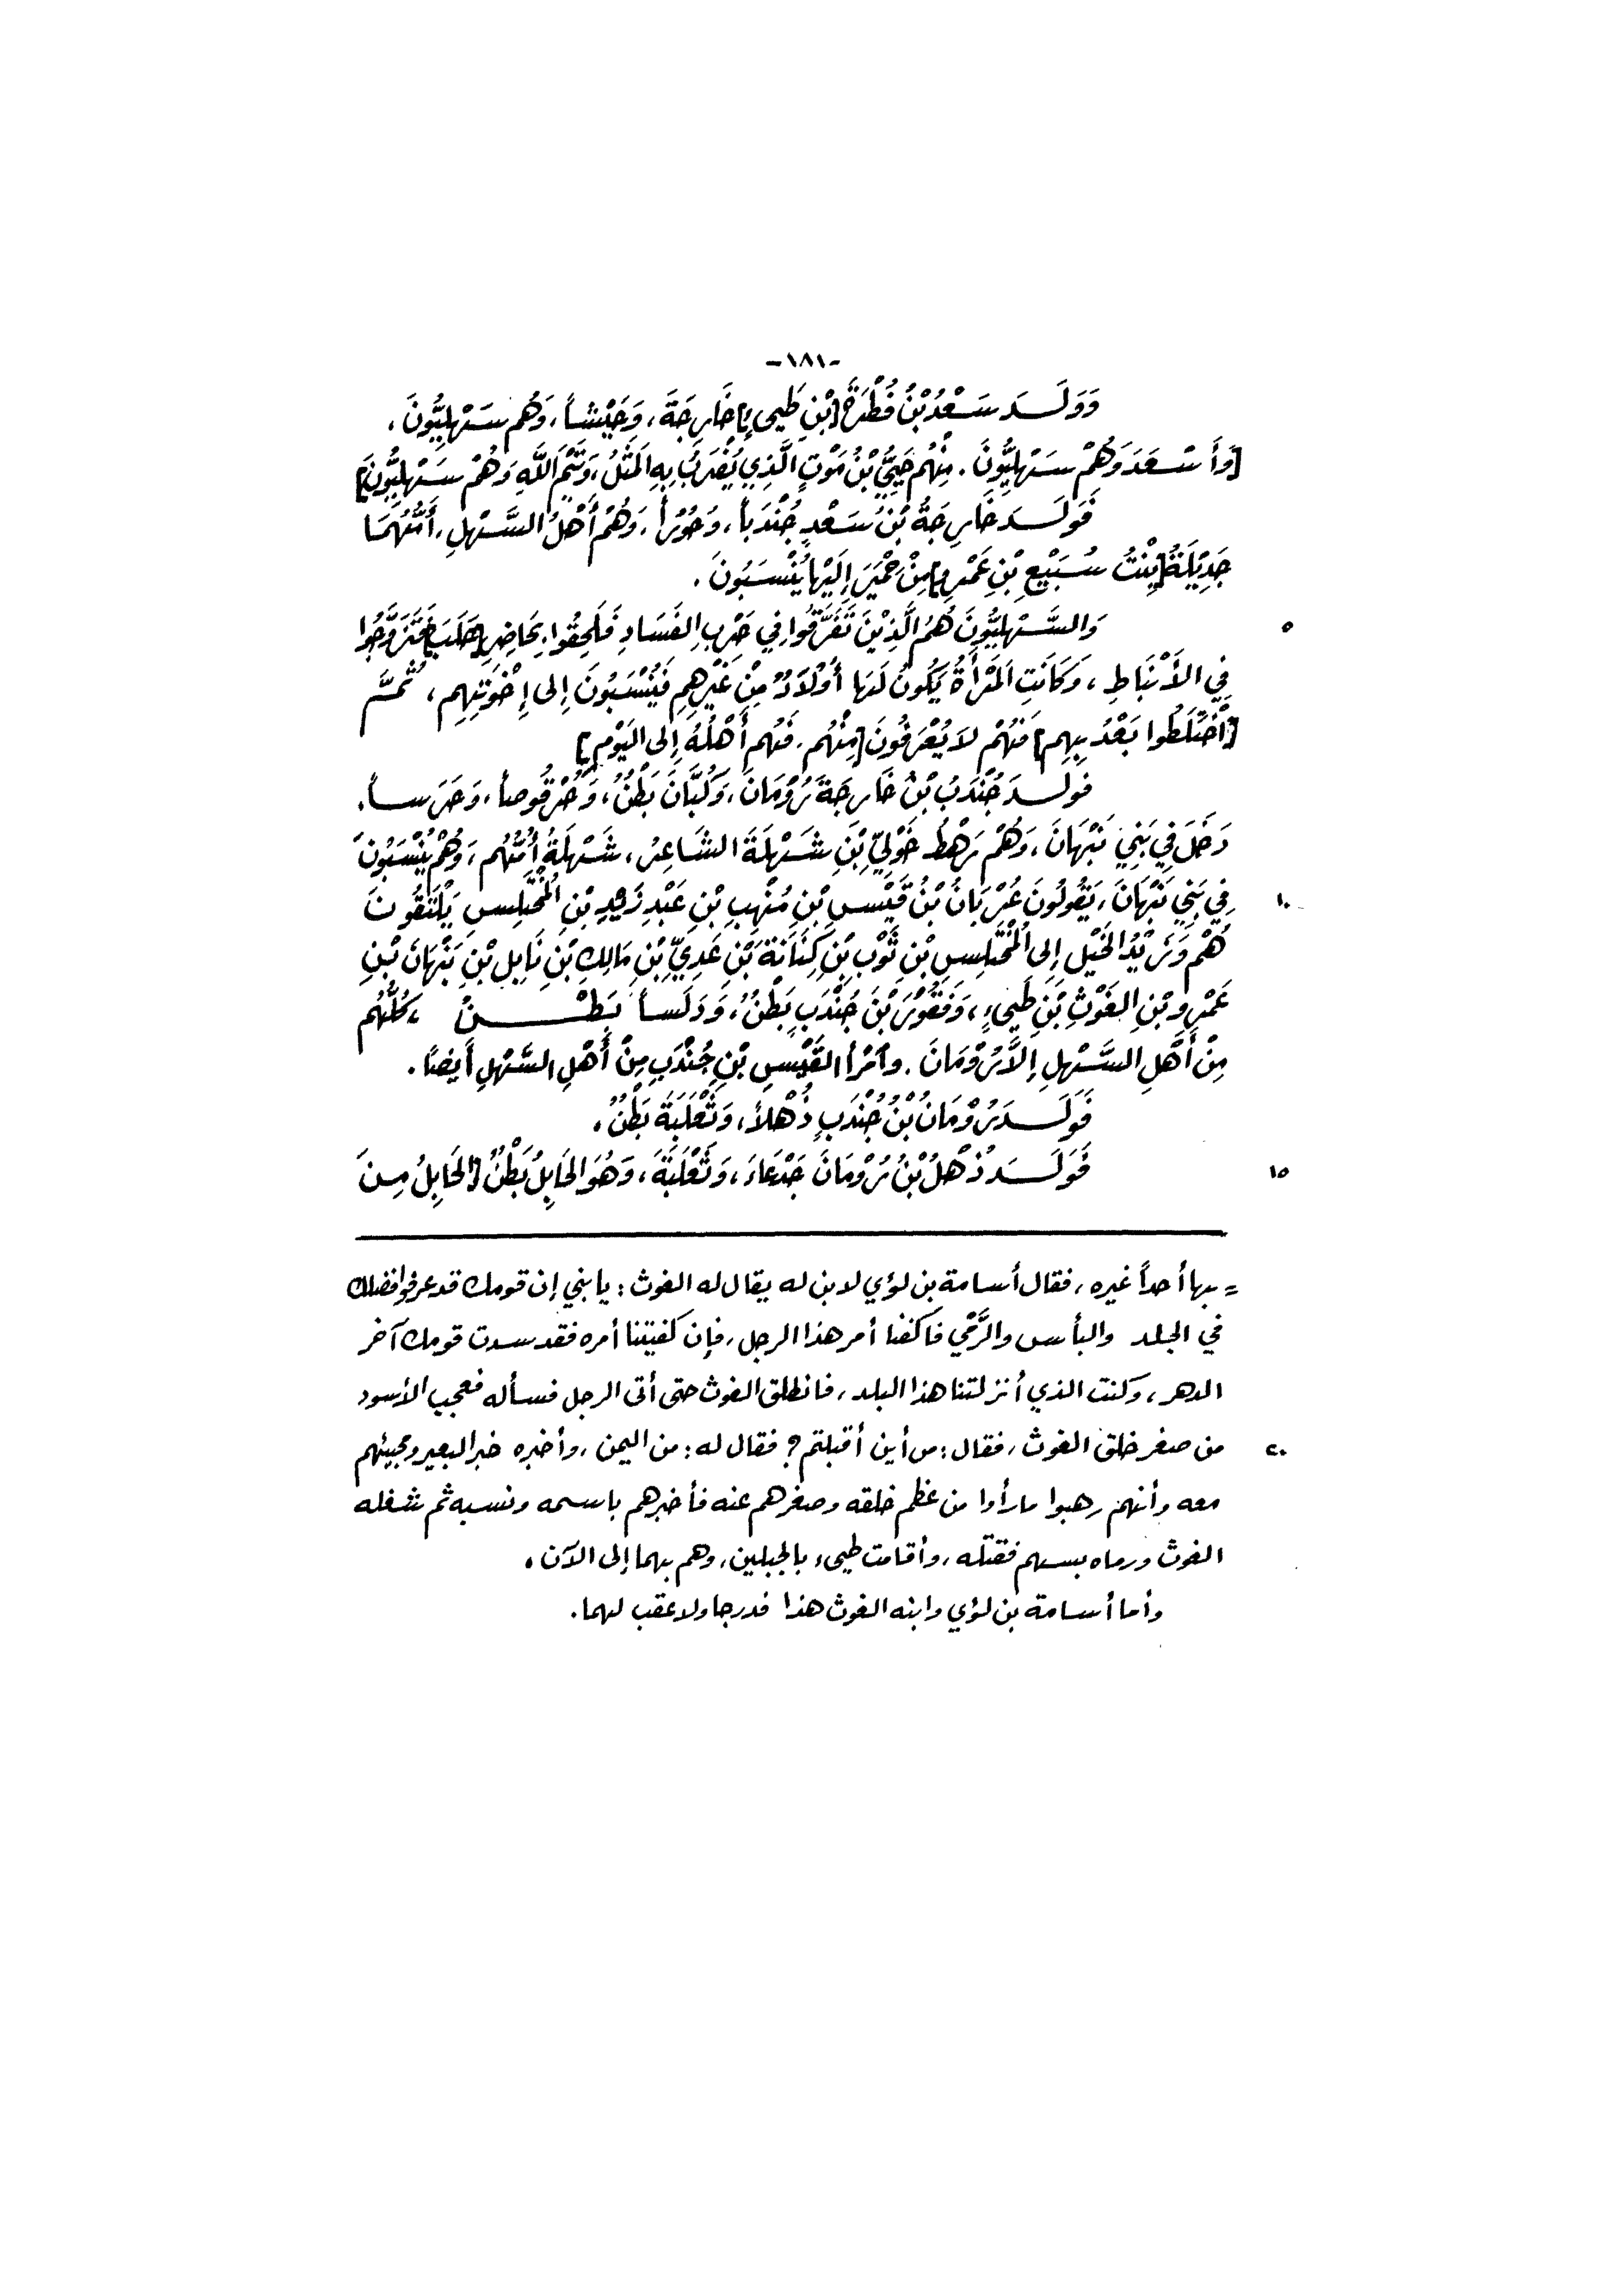 -١٨١-
وَوَلَـدَ سَعْدُ بْنُ فُطْرَةَ [بْنِ طَيِّئٍ] خَارِجَةَ، وَجَيْشاً، وَهُم سَهْلِيُّونَ،
[وَأَسْعَدَ وَهُمْ سَهْلِيُّونَ. مِنْهُم حَيِيُّ بْنُ مَوْتٍ الَّذِي يُضْرَبُ بِهِ المَثَلُ، وَتَيْمَ اللَّهِ وَهُمْ سَهْلِيُّونَ]
فَوَلَـدَ خَارِجَةُ بْنُ سَعْدٍ جُنْدَباً، وَحُوْراً، وَهُمْ أَهْلُ السَّهْلِ، أُمُّهُمَا
جَدِيْلَةُ [بِنْتُ سُبَيْعِ بْنِ عَمْرٍو] مِنْ حِمْيَرَ إِلَيْهَا يُنْسَبُونَ.
٥ وَالسَّهْلِيُّونَ هُمُ الَّذِيْنَ تَفَرَّقُوا فِي حَرْبِ الفَسَادِ فَلَحِقُوا بِحَاضِرِ [حَلَبَ] فَتَزَوَّجُوا
فِي الأَنْبَاطِ، وَكَانَتِ المَرْأَةُ يَكُونُ لَهَا أَوْلاَدٌ مِنْ غَيْرِهِم فَيُنْسَبُونَ إِلى إِخْوَتِهِم، ثُمَّ
[اخْتَلَطُوا بَعْدُ بِهِم] فَهُمْ لاَ يُعْرَفُونَ [مِنْهُم، فَهُم أَهْلُهُ إِلى اليَوْمِ]
فَوَلَـدَ جُنْدَبُ بْنُ خَارِجَةَ رُوْمَانَ، وَكُبَّانَ بَطْنٌ، وَحُرْقُوصاً، وَحَرَسـاً،
دَخَلَ فِي بَنِي نَبْهَانَ، وَهُمْ رَهْطُ خَوْلِيِّ بْنِ شَهْلَةَ الشَّاعِرِ، شَهْلَةُ أُمُّهُم، وَهُمْ يُنْسَبُونَ
١٠ فِي بَنِي نَبْهَانَ، يَقُولُونَ عُرْيَانُ بْنُ قَيْسِ بْنِ مُنْهِبِ بْنِ عَبْدِ رُضَى بْنِ المُخْتَلِسِ يَلْتَقُونَ
هُمْ وَزَيْدُ الخَيْلِ إِلى المُخْتَلِسِ بْنِ ثَوْبِ بْنِ كِنَانَةَ بْنِ عَدِيِّ بْنِ مَالِكِ بْنِ نَابِلِ بْنِ نَبْهَانَ بْنِ
عَمْرِو بْنِ الغَوْثِ بْنِ طَيِّئٍ، وَفَعْوَرَ بْنَ جُنْدَبٍ بَطْنٌ، وَدَلَساً بَطْـنٌ ، كُلُّهُم
مِنْ أَهْلِ السَّهْلِ إِلاَّ رُوْمَانَ. وامْرَأَ القَيْسِ بْنِ جُنْدَبٍ مِنْ أَهْلِ السَّهْلِ أَيضاً.
فَوَلَـدَ رُوْمَانُ بْنُ جُنْدَبٍ ذُهْلاً، وَثَعْلَبَةَ بَطْنٌ.
١٥ فَوَلَـدَ ذُهْلُ بْنُ رُوْمَانَ جَدْعَاءَ، وَثَعْلَبَةَ، وَهُوَ الحَابِلُ بَطْنٌ [الحَابِلُ مِـنَ
= بها أحداً غيره، فقال أسامة بن لؤي لابن له يقال له الغوث: يا بني إن قومك قد عرفوا فضلك
في الجلد والبأس والرَّمْي فاكفنا أمر هذا الرجل، فإن كفيتنا أمره فقد سدت قومك آخر
الدهر، وكنت الذي أنزلتنا هذا البلد، فانطلق الغوث حتى أتى الرجل فسأله فعجب الأسود
٢٠ من صغر خلق الغوث، فقال: من أين أقبلتم؟ فقال له: من اليمن، وأخبره خبر البعير ومجيئهم
معه وأنهم رهبوا ما رأوا من عظم خلقه وصغرهم عنه فأخبرهم باسمه ونسبه ثم شغله
الغوث ورماه بسهم فقتله، وأقامت طيىء بالجبلين، وهم بهما إلى الآن.
وأما أسامة بن لؤي وابنه الغوث هذا فدرجا ولا عقب لهما.